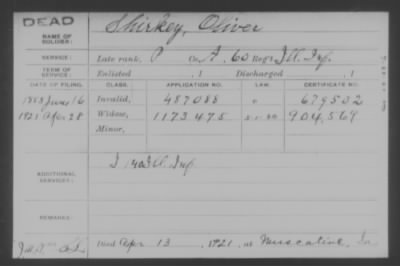 DEAD
NAME OF SOLDIER: Shirkey, Oliver
SERVICE: Late rank, P Co. A, 60 Reg't Ill. Inf.
TERM OF SERVICE: Enlisted , 1 Discharged , 1
DATE OF FILING. CLASS. APPLICATION NO. LAW. CERTIFICATE NO.
1888 June 16 Invalid, 487088 679502
1921 Apr 28 Widow, 1173475 904,569
Minor,
ADDITIONAL SERVICES: Ill. Inf.
REMARKS:
Died Apr 13, 1921, at Muscatine, Ia